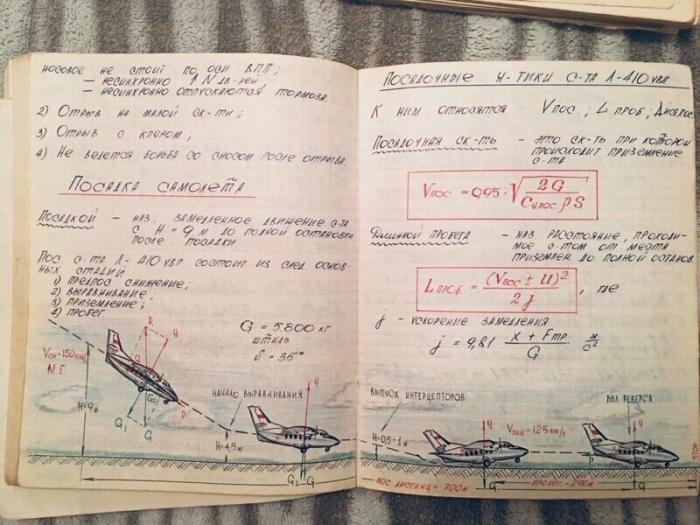 носовое не стоит по оси ВПП;
— несинхронно ↑ N дв-лей
— несинхронно отпускаются тормоза.
2) Отрыв на малой ск-ти;
3) Отрыв с креном;
4) Не ведется борьба со сносом после отрыва.
Посадка самолета
Посадкой – наз. замедленное движение с-та
с H = 9 м до полной остановки
после посадки
Пос с-та Л-410 УВП состоит из след. основ-
ных стадий
1) предпос снижение;
2) выравнивание;
3) приземление;
4) пробег
G = 5800 кг
штиль
δ = 35°
Vсн=150 км/ч
М.Г.
R
Y
Q
G₂
P
G₁
G
H=9м
начало выравнивания
H=4,5м
Y
G₁
G
Посадочные х-тики с-та Л-410 УВП.
К ним относятся: Vпос; L проб; Lпос
Посадочная ск-ть – это ск-ть при которой
происходит приземление
с-та
Vпос = 0,95 · √2G / Cyпос ρ S
Длиной пробега – наз. расстояние, проходи-
мое с-том от места
приземлен. до полной останов.
L проб. = (Vпос ± U)² / 2j , где
j – ускорение замедления
j = 9,81 X + Fтр / G м/с²
выпуск интерцепторов
H=0,5-1м
Vпос=125 км/ч
Y
G
вкл реверса
Y
P
G
пос. дистанц = 700м
пробег = 290м